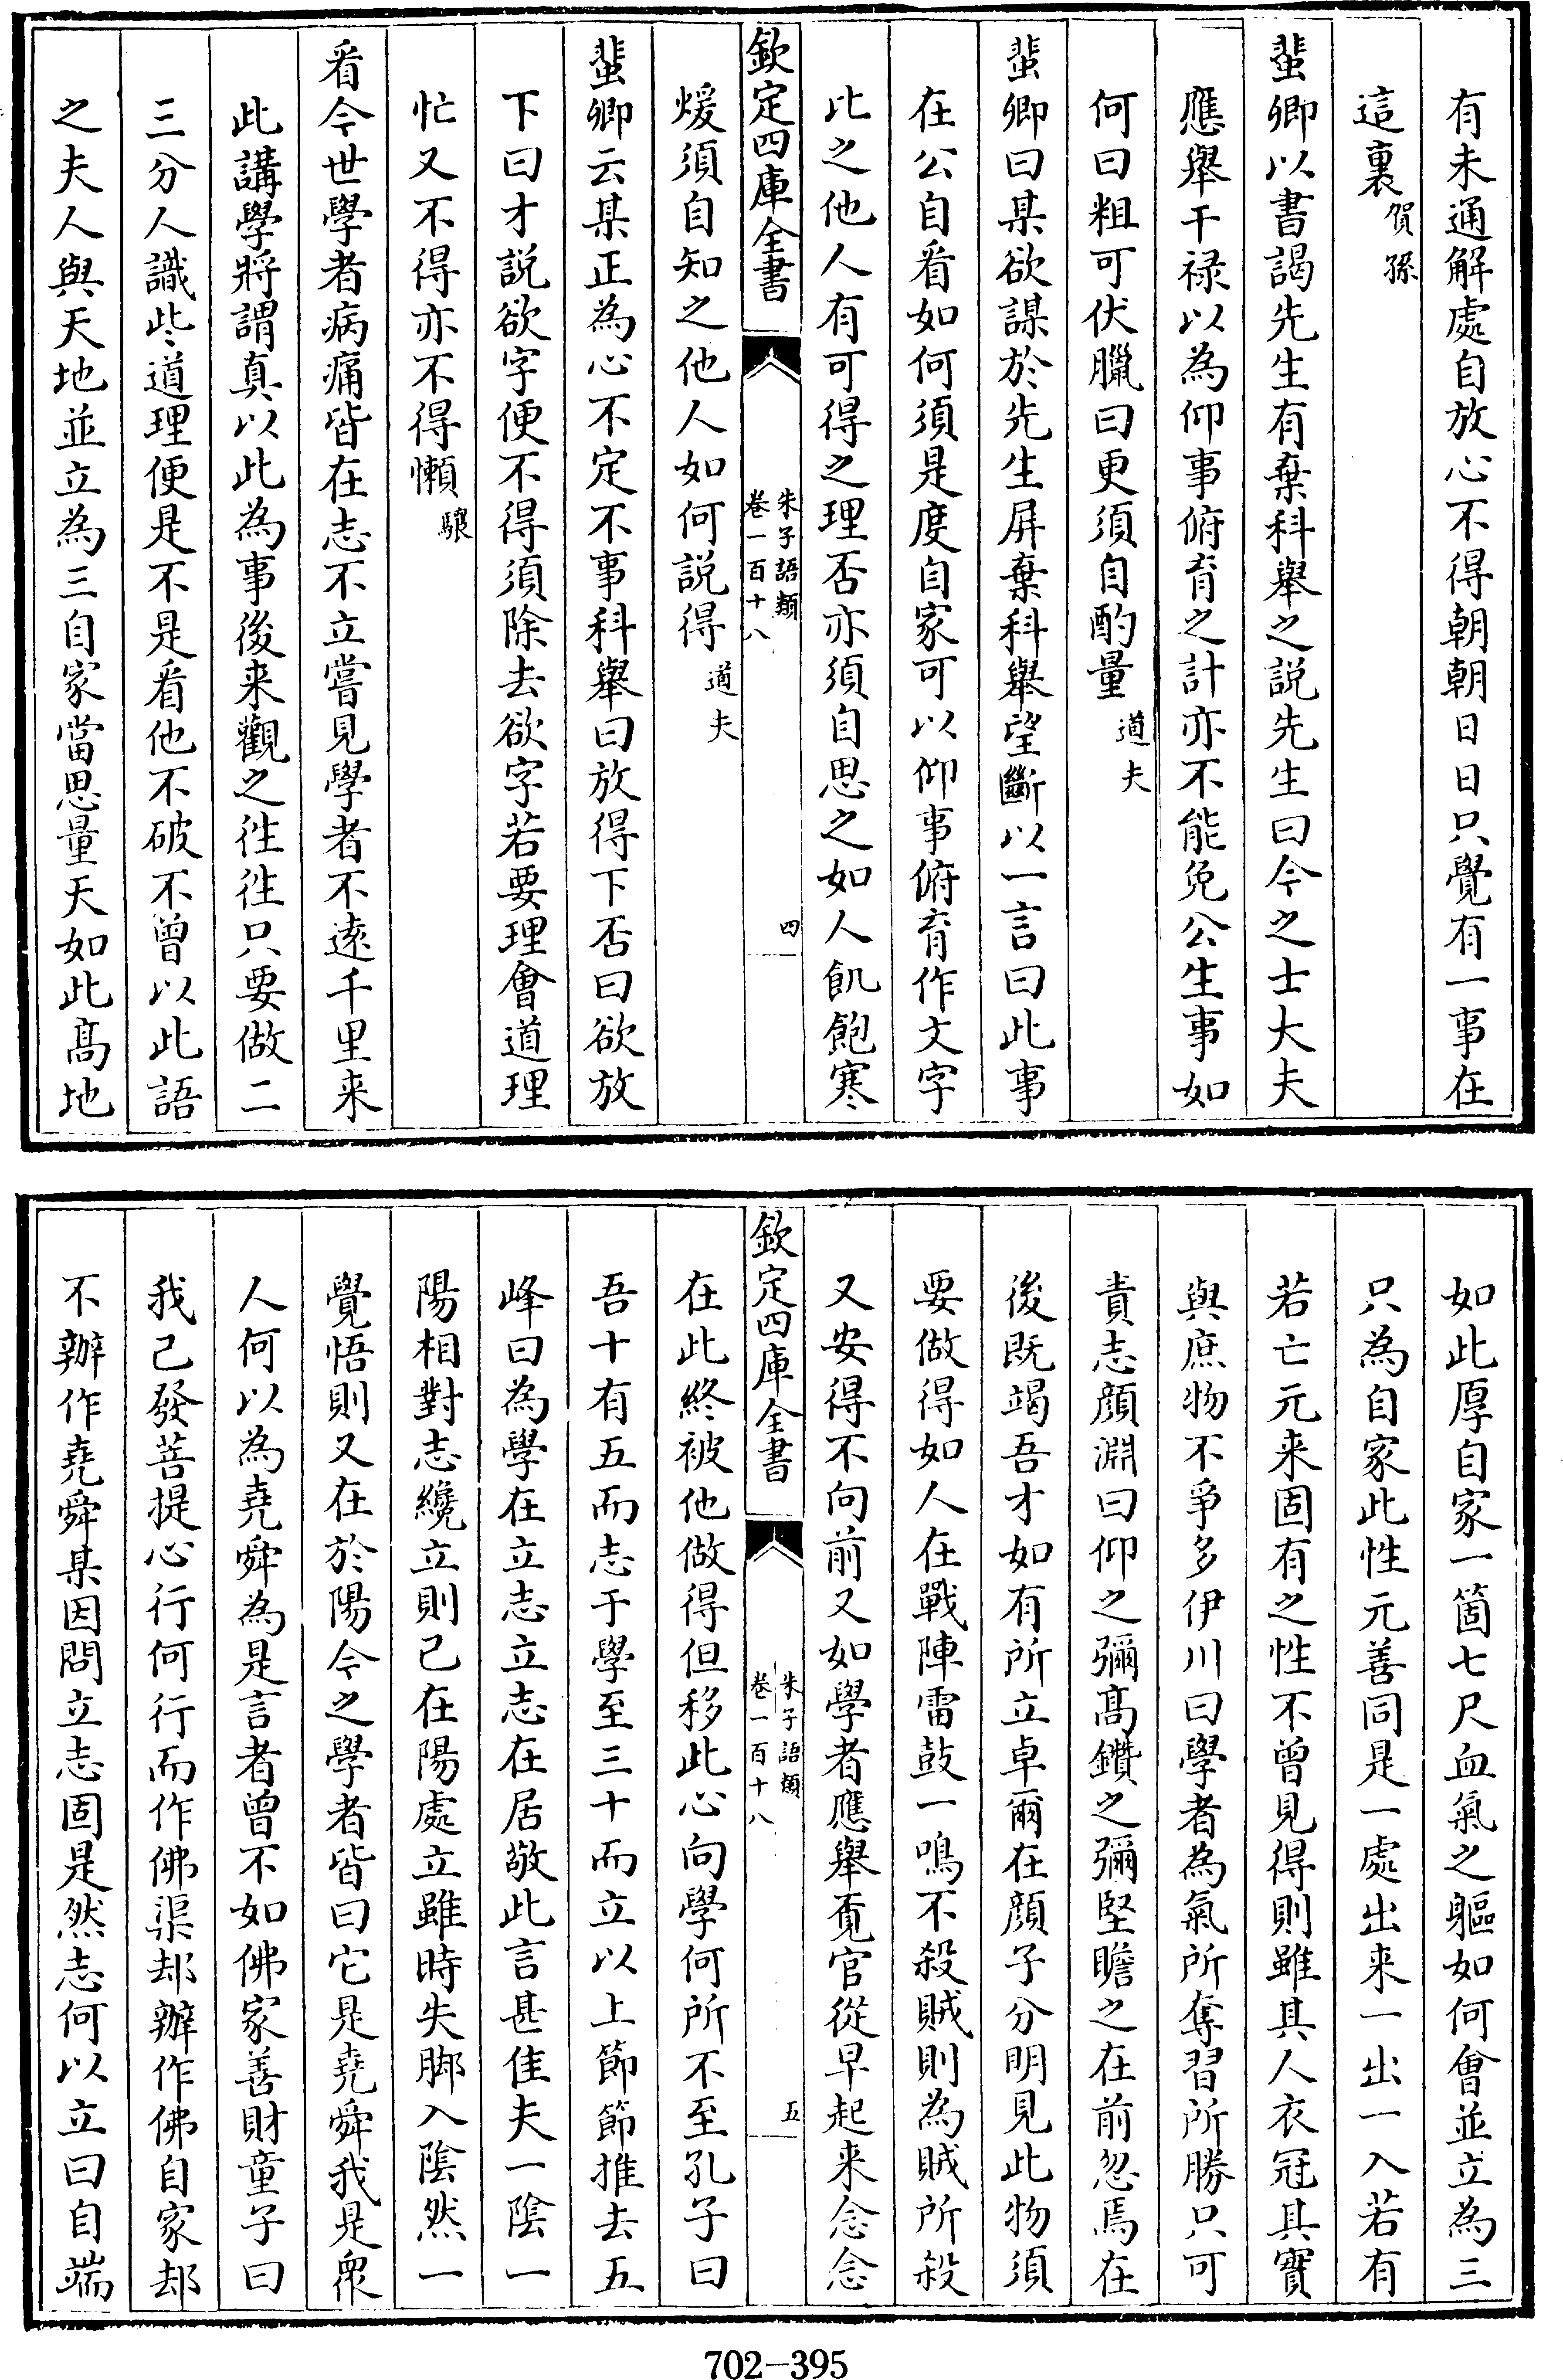 有未通解處自放心不得朝朝日日只覺有一事在
這裏賀孫
蜚卿以書謁先生有棄科舉之説先生曰今之士大夫
應舉干禄以為仰事俯育之計亦不能免公生事如
何曰粗可伏臘曰更須自酌量道夫
蜚卿曰某欲謀於先生屏棄科舉望斷以一言曰此事
在公自㸔如何須是度自家可以仰事俯育作文字
比之他人有可得之理否亦須自思之如人飢飽寒
欽定四庫全書
朱子語類
卷一百十八
四
煖須自知之他人如何説得道夫
蜚卿云某正為心不定不事科舉曰放得下否曰欲放
下曰才説欲字便不得須除去欲字若要理會道理
忙又不得亦不得懶驤
㸔今世學者病痛皆在志不立嘗見學者不逺千里来
此講學將謂真以此為事後来觀之徃徃只要做二
三分人識些道理便是不是㸔他不破不曾以此語
之夫人與天地並立為三自家當思量天如此髙地
如此厚自家一箇七尺血氣之軀如何㑹並立為三
只為自家此性元善同是一處出来一出一入若有
若亡元来固有之性不曾見得則雖其人衣冠其實
與庶物不爭多伊川曰學者為氣所奪習所勝只可
責志顔淵曰仰之彌髙鑽之彌堅瞻之在前忽焉在
後既竭吾才如有所立卓爾在顔子分明見此物須
要做得如人在戰陣雷鼓一鳴不殺賊則為賊所殺
又安得不向前又如學者應舉覔官從早起来念念
欽定四庫全書
朱子語類
卷一百十八
五
在此終被他做得但移此心向學何所不至孔子曰
吾十有五而志于學至三十而立以上節節推去五
峰曰為學在立志立志在居敬此言甚佳夫一隂一
陽相對志纔立則已在陽處立雖時失脚入隂然一
覺悟則又在於陽今之學者皆曰它是堯舜我是衆
人何以為堯舜為是言者曾不如佛家善財童子曰
我已發菩提心行何行而作佛渠却辦作佛自家却
不辦作堯舜某因問立志固是然志何以立曰自端
702-395